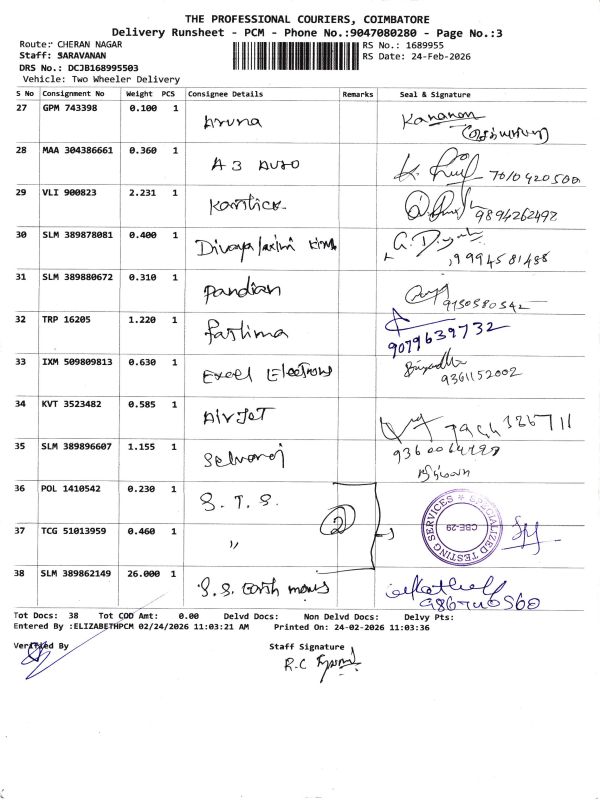 THE PROFESSIONAL COURIERS, COIMBATORE
Delivery Runsheet - PCM - Phone No.:9047080280 - Page No.:3
Route: CHERAN NAGAR
RS No.: 1689955
Staff: SARAVANAN
RS Date: 24-Feb-2026
DRS No.: DCJB168995503
Vehicle: Two Wheeler Delivery
S No Consignment No Weight PCS Consignee Details Remarks Seal & Signature
27 GPM 743398 0.100 1 Aruna
28 MAA 304386661 0.360 1 A 3 Auto
29 VLI 900823 2.231 1 9894262492
30 SLM 389878081 0.400 1
31 SLM 389880672 0.310 1 Pandian 9750580542
32 TRP 16205 1.220 1 Fathima 9079639732
33 IXM 509809813 0.630 1 Excel 9361152002
34 KVT 3523482 0.585 1 AirJet
35 SLM 389896607 1.155 1 Selvaraj
36 POL 1410542 0.230 1 S. T. S. 2
SPECIALIZED TESTING SERVICES
CBE-29
37 TCG 51013959 0.460 1 "
38 SLM 389862149 26.000 1 S.S. Earth movers
Tot Docs: 38 Tot COD Amt: 0.00 Delvd Docs: Non Delvd Docs: Delvy Pts:
Entered By :ELIZABETHPCM 02/24/2026 11:03:21 AM Printed On: 24-02-2026 11:03:36
Verified By
Staff Signature
R.C